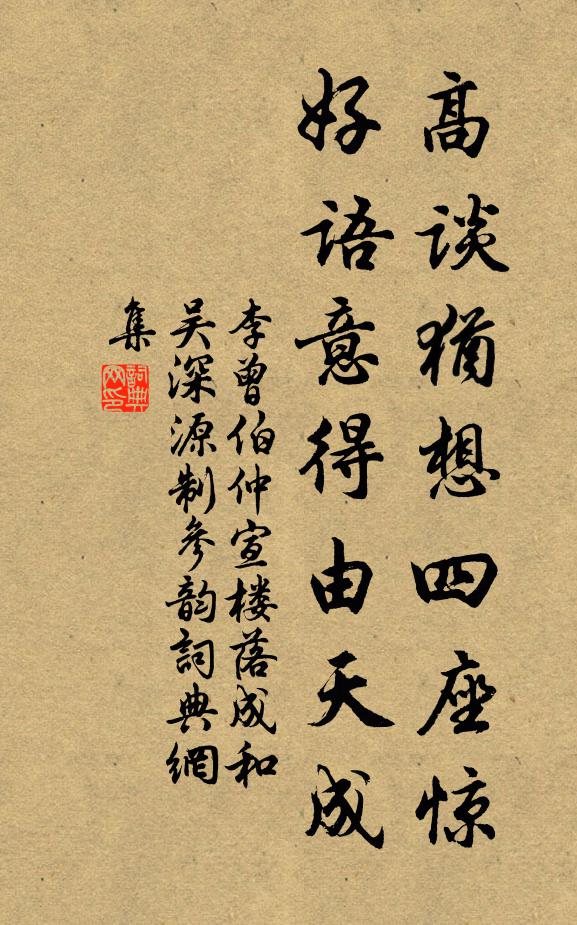 高谈猶想四座惊
好语意得由天成
李曾伯仲宣楼落成和
吴深源制参韵詞典網
集
詞典
网印